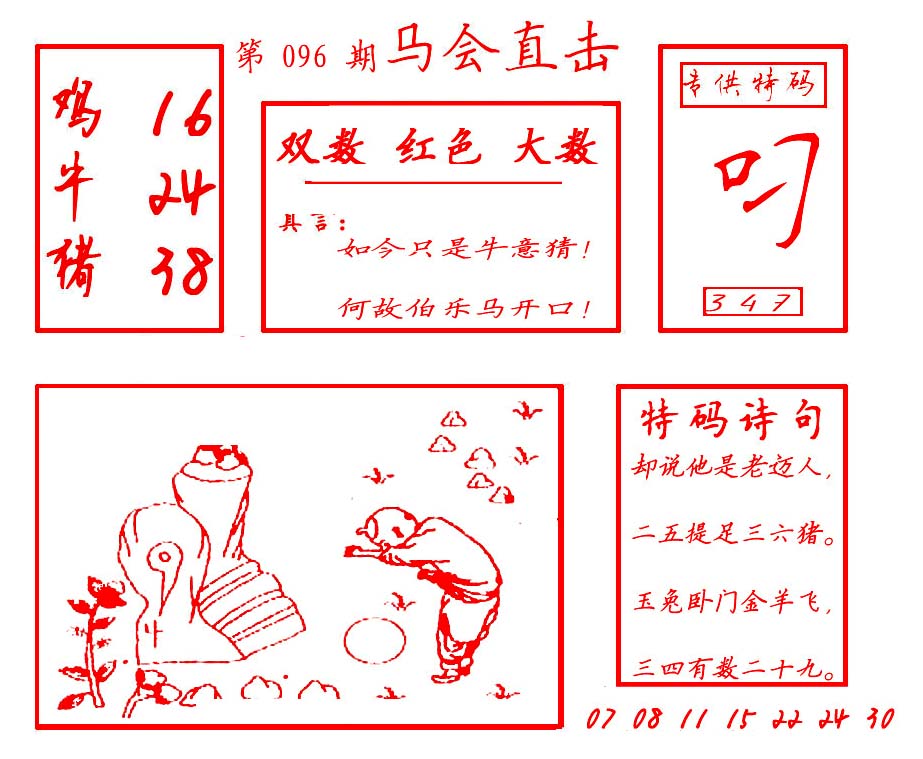 第 096 期 马会直击
鸡 16
牛 24
猪 38
双数 红色 大数
具言：
如今只是牛意猜！
何故伯乐马开口！
专供特码
叼
347
牛
特码诗句
却说他是老迈人，
二五提足三六猪。
玉兔卧门金羊飞，
三四有数二十九。
07 08 11 15 22 24 30